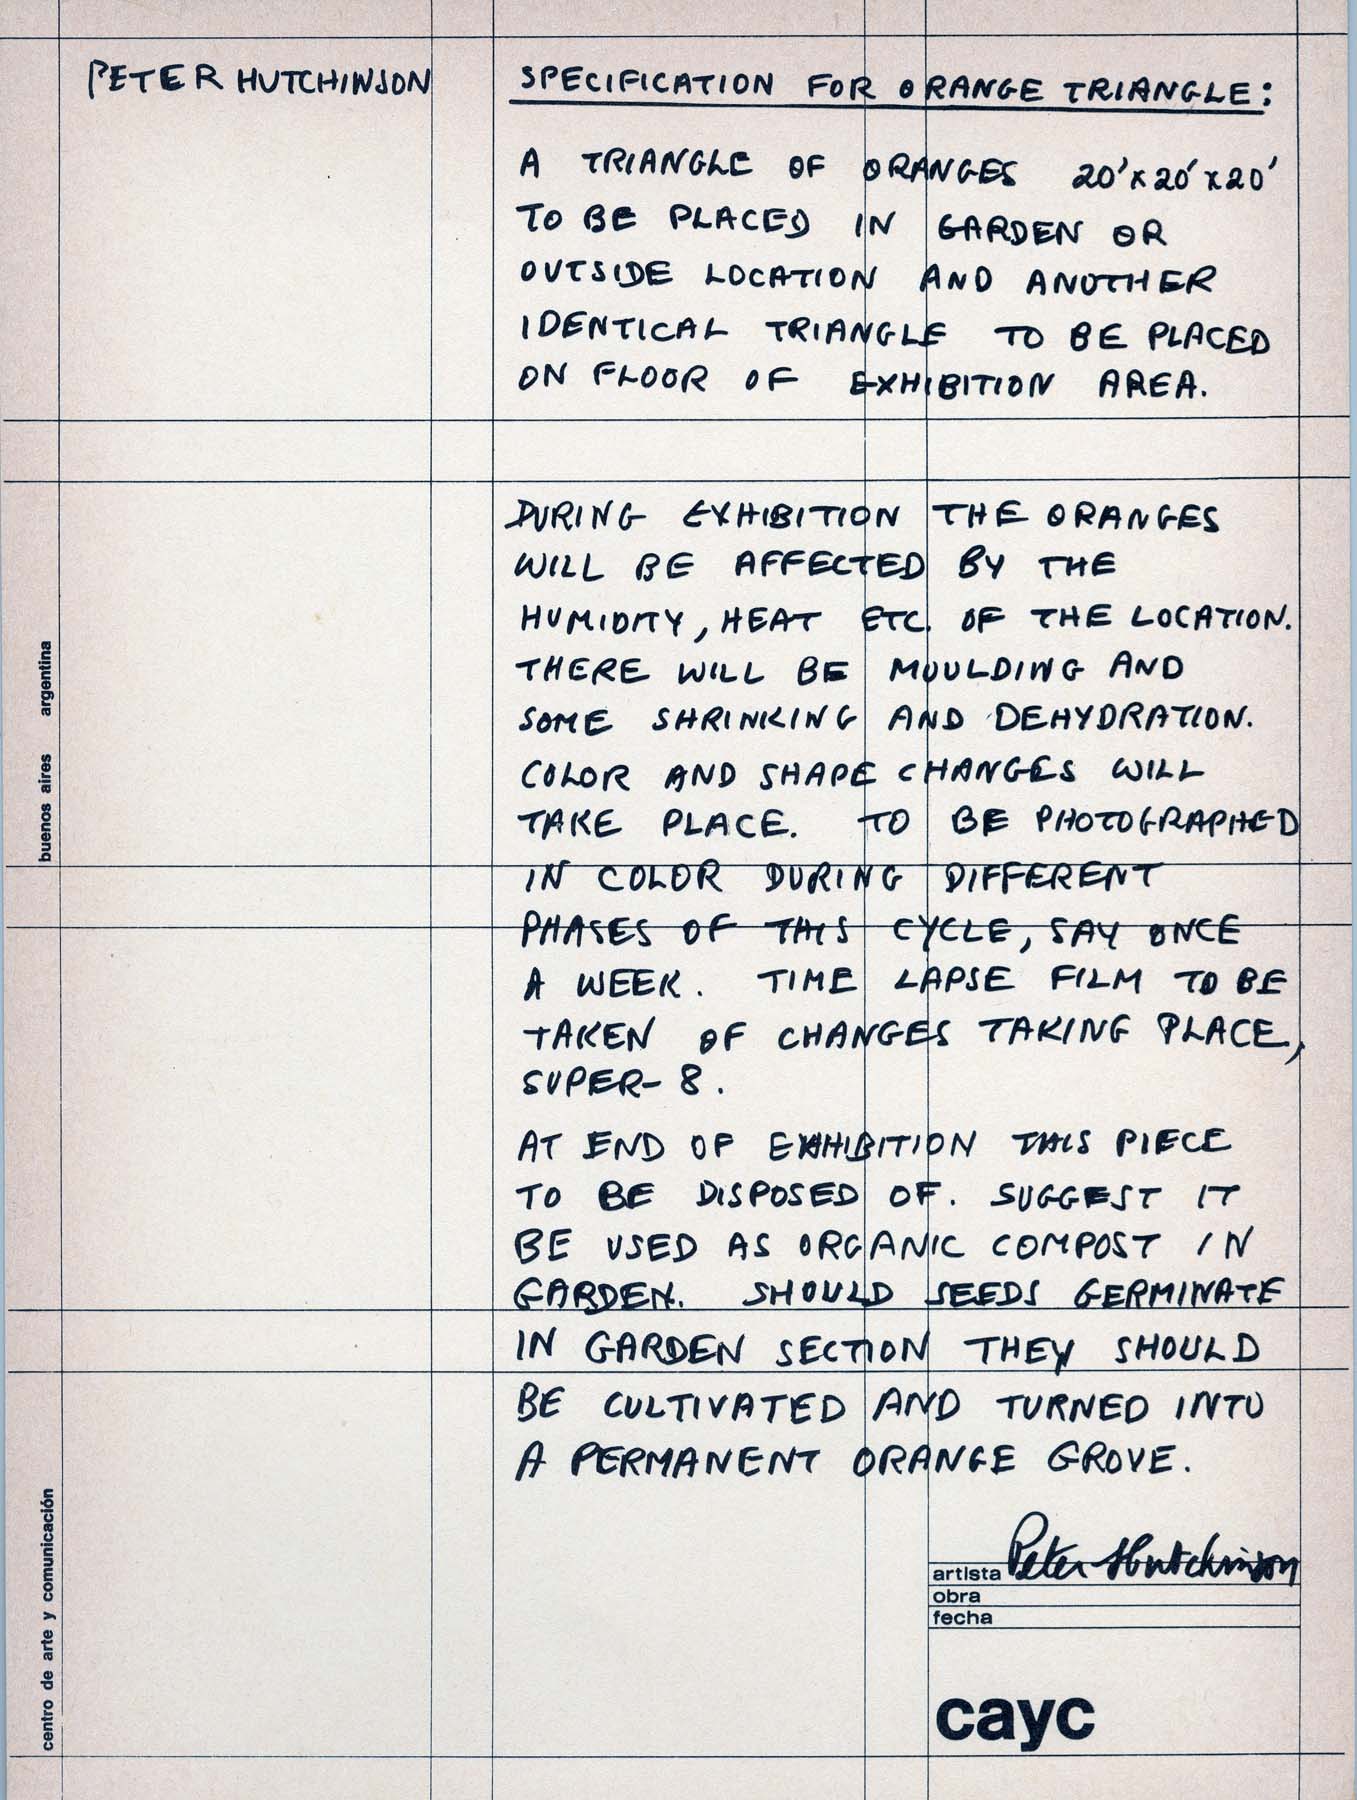 PETER HUTCHINSON
SPECIFICATION FOR ORANGE TRIANGLE:
A TRIANGLE OF ORANGES 20'x20'x20'
TO BE PLACED IN GARDEN OR
OUTSIDE LOCATION AND ANOTHER
IDENTICAL TRIANGLE TO BE PLACED
ON FLOOR OF EXHIBITION AREA.
DURING EXHIBITION THE ORANGES
WILL BE AFFECTED BY THE
HUMIDITY, HEAT ETC. OF THE LOCATION.
THERE WILL BE MOULDING AND
SOME SHRINKING AND DEHYDRATION.
COLOR AND SHAPE CHANGES WILL
TAKE PLACE. TO BE PHOTOGRAPHED
IN COLOR DURING DIFFERENT
PHASES OF THIS CYCLE, SAY ONCE
A WEEK. TIME LAPSE FILM TO BE
TAKEN OF CHANGES TAKING PLACE,
SUPER-8.
AT END OF EXHIBITION THIS PIECE
TO BE DISPOSED OF. SUGGEST IT
BE USED AS ORGANIC COMPOST IN
GARDEN. SHOULD SEEDS GERMINATE
IN GARDEN SECTION THEY SHOULD
BE CULTIVATED AND TURNED INTO
A PERMANENT ORANGE GROVE.
artista Peter Hutchinson
obra
fecha
cayc
buenos aires argentina
centro de arte y comunicación